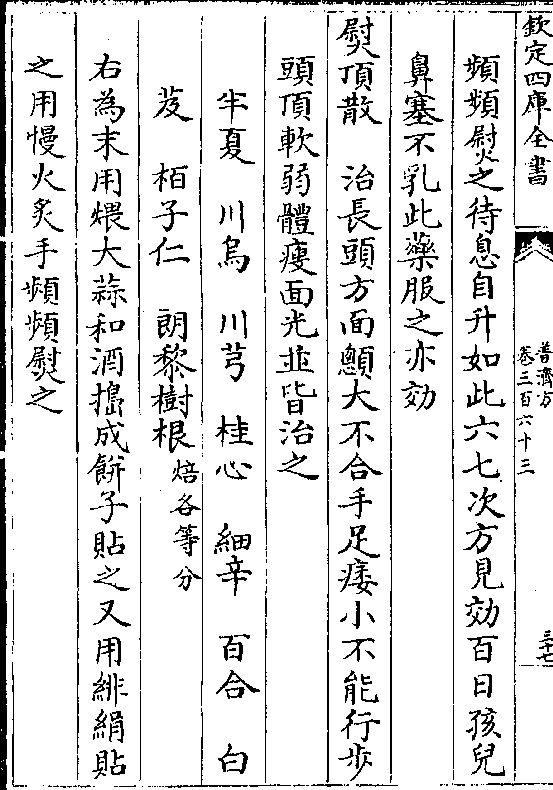 欽定四庫全書
普濟方
卷三百六十三
三十七
頻頻熨之待息自升如此六七次方見効百日孩兒
鼻塞不乳此藥服之亦効
熨頂散　治長頭方面顖大不合手足痿小不能行步
頭頂軟弱體瘦面光並皆治之
半夏　川烏　川芎　桂心　細辛　百合　白
芨　栢子仁　朗黎樹根焙各等分
右為末用煨大蒜和酒搗成餅子貼之又用緋絹貼
之用慢火炙手頻頻熨之